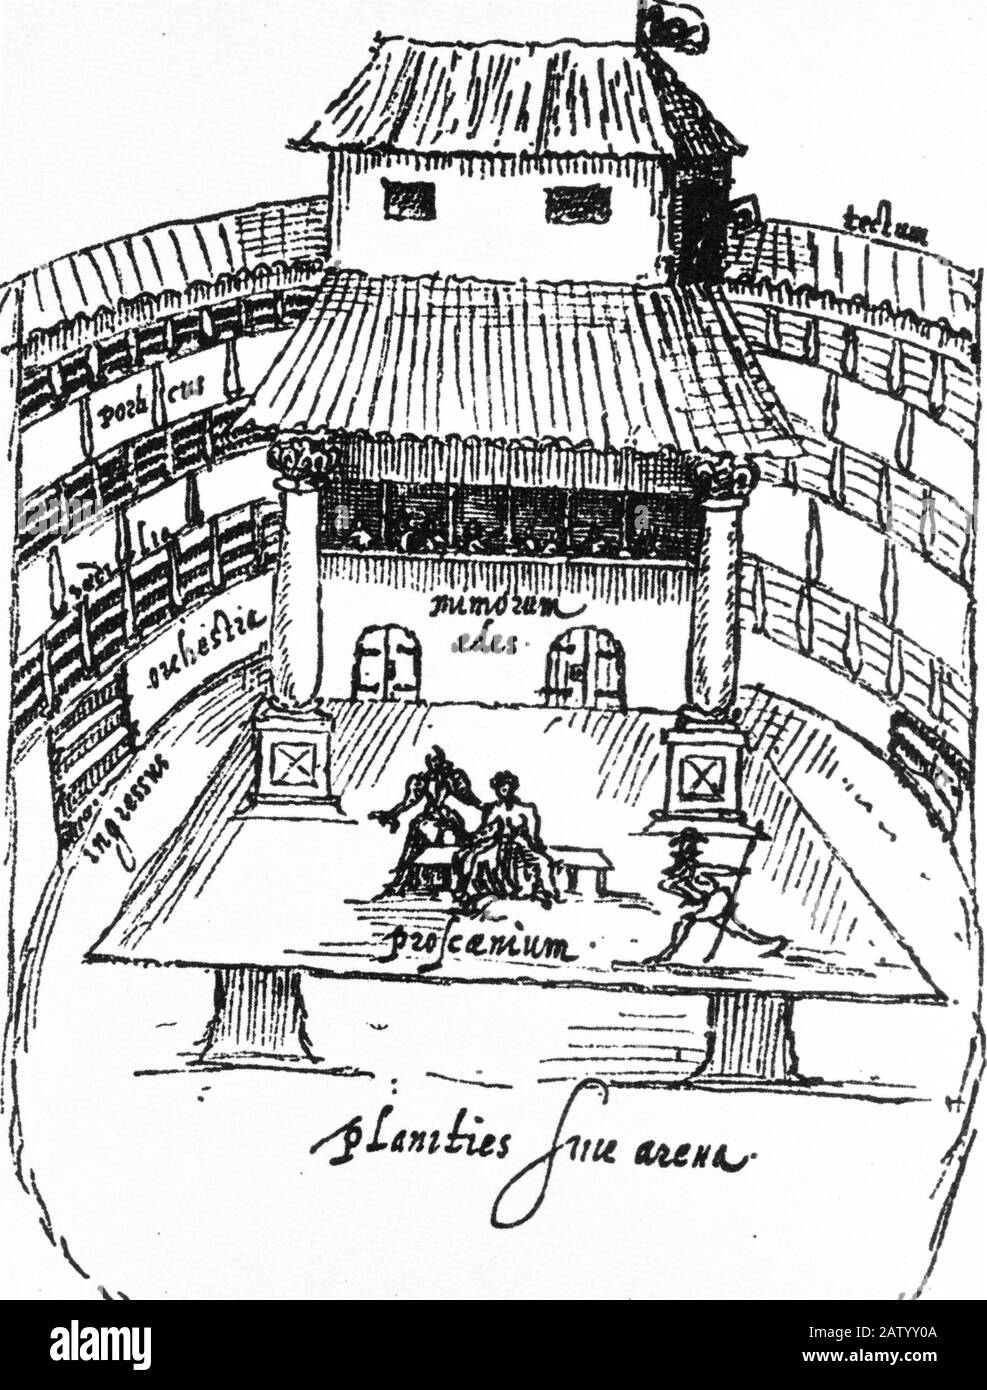 tectum
porticus
sedilia
orchestra
mimorum
ædes.
ingressus
proscænium.
planities siue arena.
alamy
Image ID: 2ATYY0A
www.alamy.com